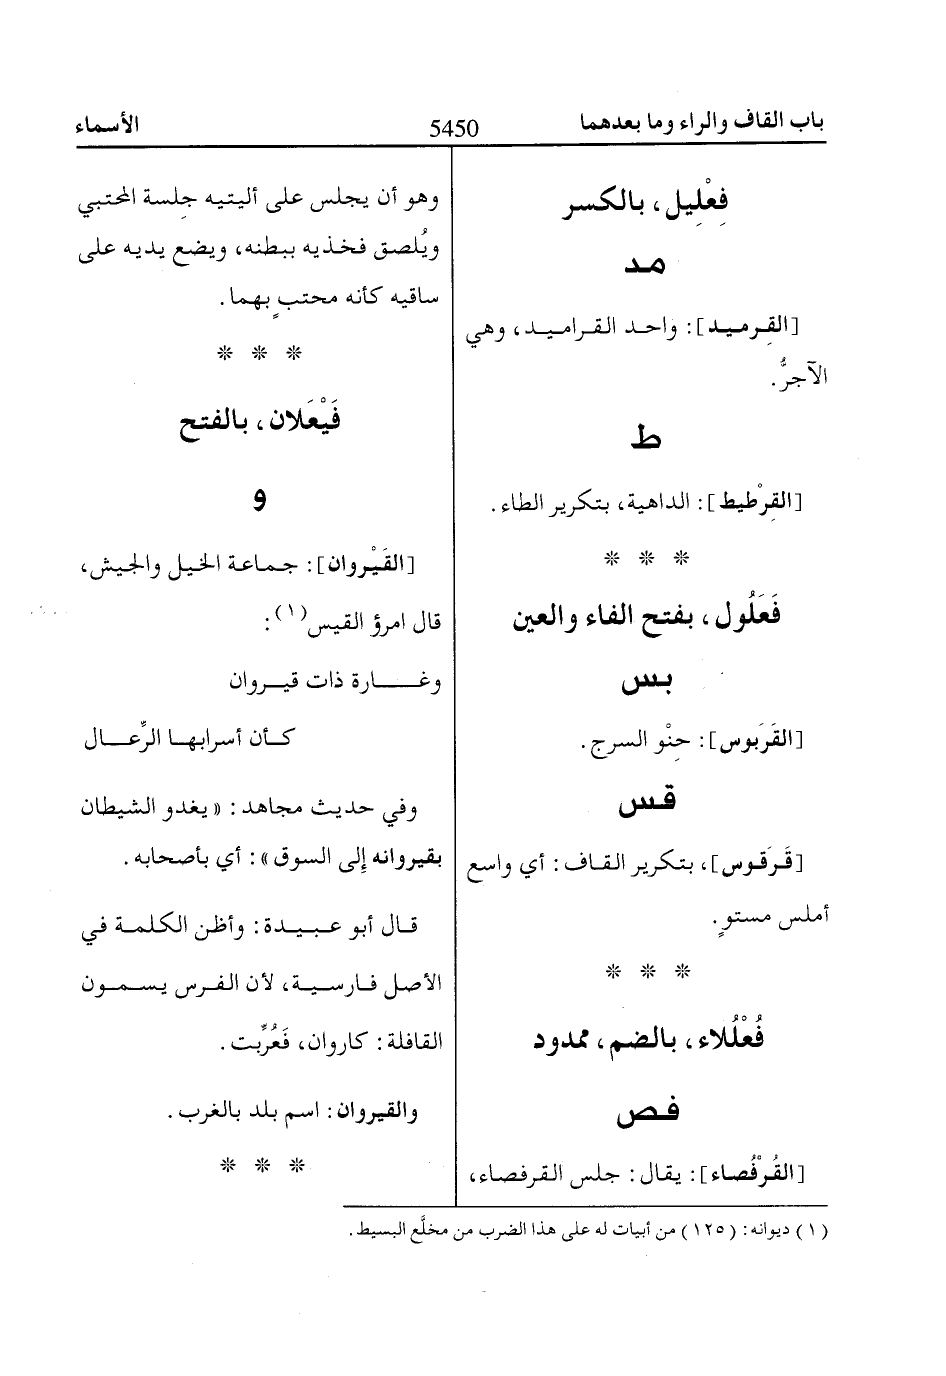 باب القاف والراء وما بعدهما
5450
الأسماء
فِعْلِيل، بالكسر
مد
[القِرميد]: واحد القراميد، وهي
الآجرُّ.
ط
[القِرْطيط]: الداهية، بتكرير الطاء.
* * *
فَعَلُول، بفتح الفاء والعين
بس
[القَرَبوس]: حِنْو السرج.
قس
[قَرَقوس]، بتكرير القاف: أي واسع
أملس مستوٍ.
* * *
فُعْلُلاء، بالضم، ممدود
فص
[القُرْفُصاء]: يقال: جلس القرفصاء،
وهو أن يجلس على أليتيه جِلسة المحتبي
ويُلصق فخذيه ببطنه، ويضع يديه على
ساقيه كأنه محتبٍ بهما.
* * *
فَيْعَلان، بالفتح
و
[القَيْروان]: جماعة الخيل والجيش،
قال امرؤ القيس(١):
وغارة ذات قيروان
كأن أسرابها الرِّعال
وفي حديث مجاهد: «يغدو الشيطان
بقيروانه إلى السوق»: أي بأصحابه.
قال أبو عبيدة: وأظن الكلمة في
الأصل فارسية، لأن الفرس يسمون
القافلة: كاروان، فَعُرِّبت.
والقيروان: اسم بلد بالغرب.
* * *
(١) ديوانه: (١٢٥) من أبيات له على هذا الضرب من مخلَّع البسيط.